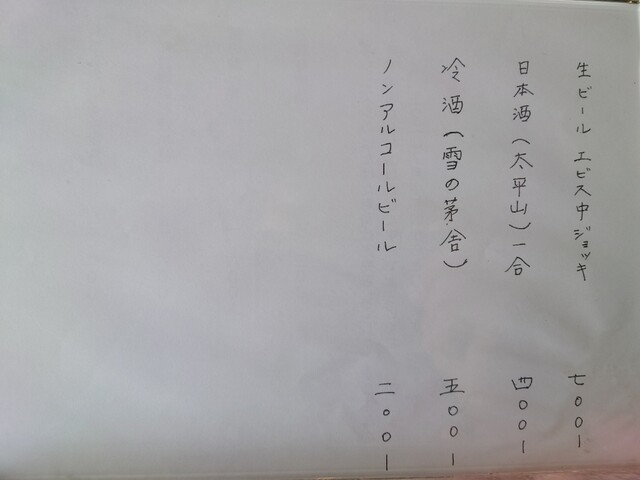 生ビール エビス中ジョッキ 七〇〇ー
日本酒（太平山）一合 四〇〇ー
冷酒（雪の茅舎） 五〇〇ー
ノンアルコールビール 二〇〇ー